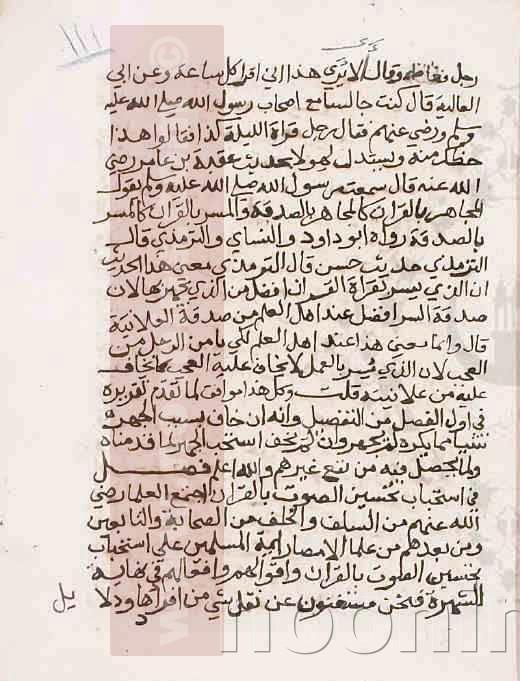 ١٢١
رجل فغاظه وقال لا يرى هذا اني اقرا كل ساعة وعن ابي
العالية قال كنت جالسا مع اصحاب رسول الله صلى الله عليه
ولم ورضي عنهم فقال رجل قراة الليلة كذا فقالوا هذا
حظك منه ويستدل لهولا بحديث عقبة بن عامر رضي
الله عنه قال سمعت رسول الله صلى الله عليه ولم يقول
المجاهر بالقران كالمجاهر بالصدقة والمسر بالقران كالمسر
بالصدقة رواه ابو داود والنساي والترمذي قال
الترمذي حديث حسن قال الترمذي معنى هذا الحديث
ان الذي يسر بقراة القران افضل من الذي يجهر بها لان
صدقة السر افضل عند اهل العلم من صدقة العلانية
قال وانما معنى هذا عند اهل العلم لكي يامن الرجل من
العجب لان الذي يسر بالعمل لا يخاف عليه العجب كما يخاف
عليه من علانيته قلت وكل هذا موافق لما تقدم تقريره
في اول الفصل من التفصيل وانه ان خاف بسبب الجهر
شيا مما يكره لم يجهر وان لم يخف استحب الجهر لما قدمناه
ولما يحصل فيه من نفع غيرهم والله اعلم فصل
في استحباب تحسين الصوت بالقران اجمع العلما رضي
الله عنهم من السلف والخلف من الصحابة والتابعين
ومن بعدهم من علما الامصار ايمة المسلمين على استحباب
تحسين الصوت بالقران واقوالهم وافعالهم في نهاية
الشهرة فنحن مستغنون عن نقل شي من افرادها ودلا
يل
noorlir